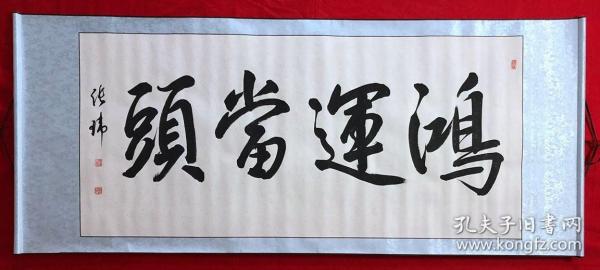 鴻運當頭
张瑋
孔夫子旧书网
www.kongfz.com